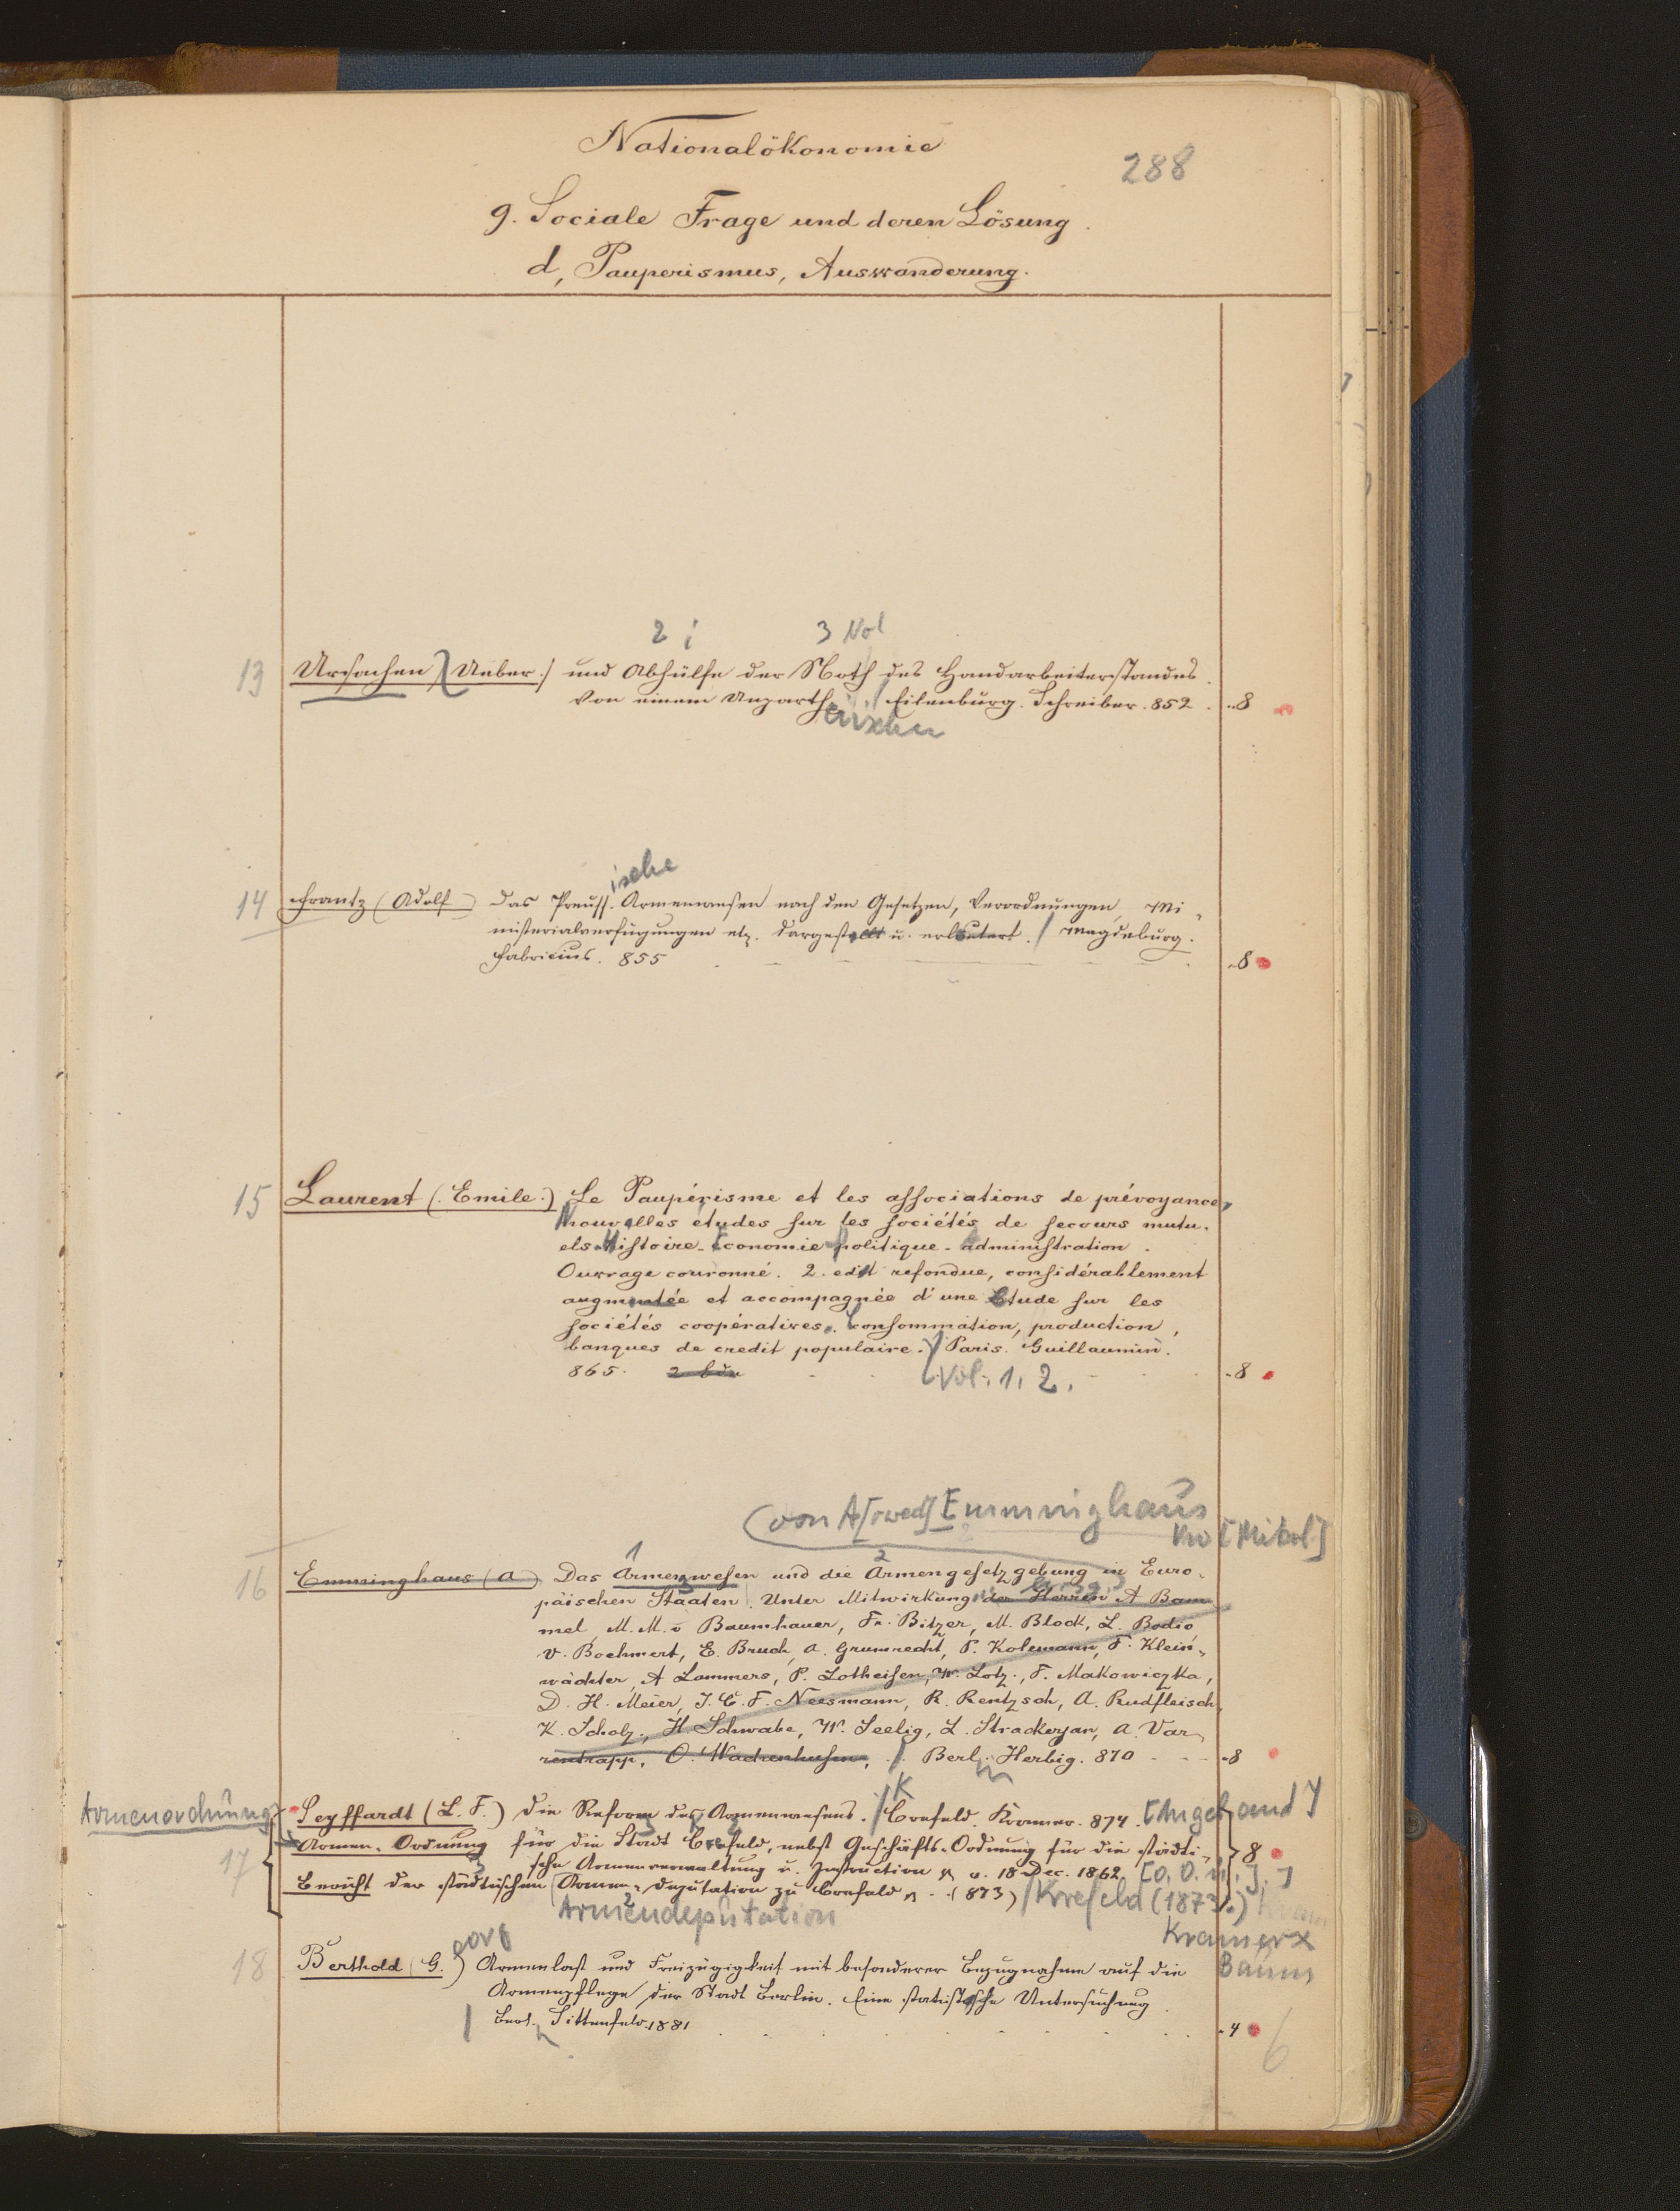 Nationalökonomie
288
9. Sociale Frage und deren Lösung.
d, Pauperismus, Auswanderung.
2 i 3 Not
13 Ursachen (Ueber.) und Abhülfe der Noth des Handarbeiterstandes.
Von einem Unparth. / Eilenburg. Schreiber. 852 . -8
eiischen
ische
14 Frantz (Adolf) Das Preuss. Armenwesen nach den Gesetzen, Verordnungen, Mi-
nisterialverfügungen etz. dargestellt u. erläutert. / Magdeburg.
Fabricius. 855 -8
15 Laurent (Emile.) Le Paupérisme et les associations de prévoyance,
Nouvelles études sur les sociétés de secours mutu-
els. Histoire - Economie politique - administration.
Ouvrage couronné. 2. edit refondue, considérablement
augmentée et accompagnée d'une Etude sur les
sociétés coopératives. Consommation, production,
banques de credit populaire. / Paris. Guillaumin.
865. 2 bde Vol. 1. 2. -8
(von A[rwed] Emminghaus
1 2
16 Emminghaus (A) Das Armenwesen und die Armengesetzgebung in Euro-
päischen Staaten. Unter Mitwirkung der Herren A Bam-
mel, M. M. v Baumhauer, Fr. Bitzer, M. Block, L. Bodio,
V. Boehmert, E. Bruch, A. Grumrecht, P. Kolemann, F. Klein-
wächter, A Lammers, P. Lotheisen, W. Lotz., F. Makowiczka,
D. H. Meier, J. C. F. Neesmann, R. Rentzsch, A. Rudfleisch,
K. Scholz., H. Schwabe, W. Seelig, L. Strackerjan, A. Var-
rentrapp, O. Wachenhusen, / Berl. Herbig. 870 - - - -8
in
K
Armenordnung
Seyffardt (L. F.) Die Reform des Armenwesens. / Crefeld. Kramer. 874. [Angeb. and]
17 Armen-Ordnung für die Stadt Crefeld, nebst Geschäfts-Ordnung für die städti- 8
sche Armenverwaltung u. Instruction v. 18 Dec. 1862. [O. O. u. J.]
Bericht der städtischen Armen-Deputation zu Crefeld - - (873) / Krefeld (1873.)
Armendeputation
Kramer x
Baum
eorg
18 Berthold (G.) Armenlast und Freizügigkeit mit besonderer Bezugnahme auf die
Armenpflege der Stadt Berlin. Eine statistische Untersuchung.
/ Berl. Sittenfeld. 1881 -4
6